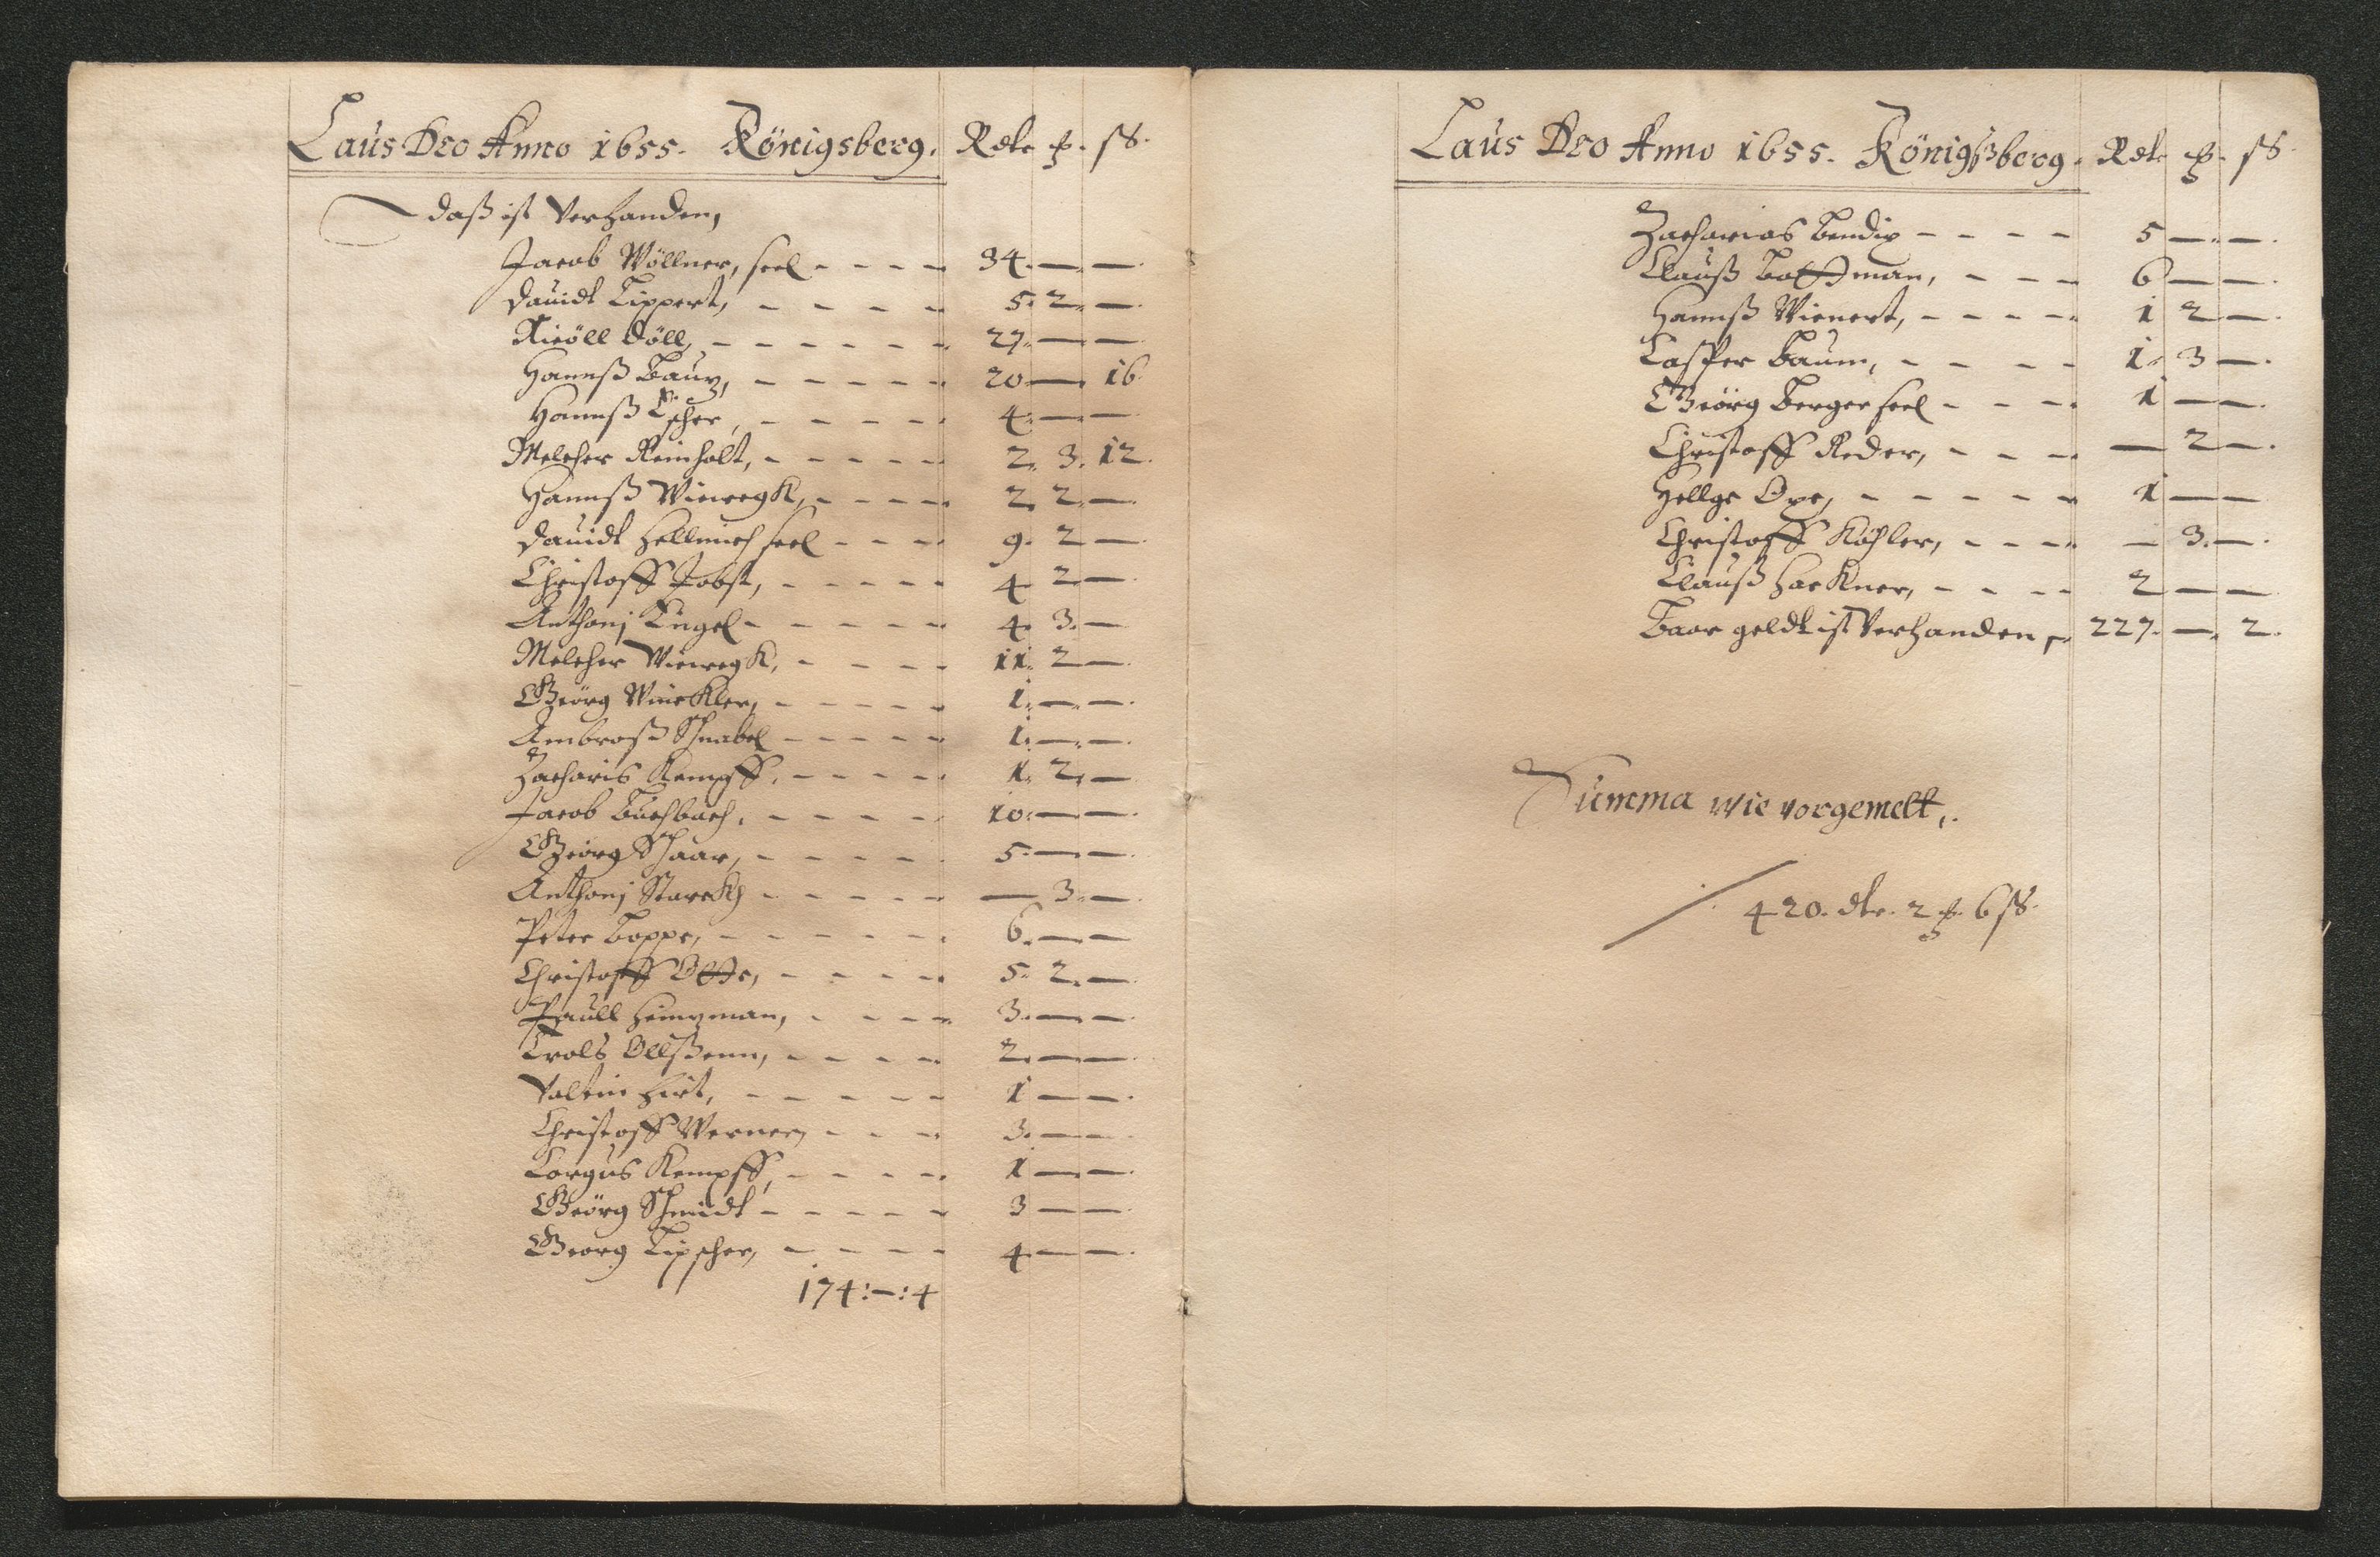 Laus Deo Anno 1655. Königsberg. Rdlr ß. ſß.
daß ist Verhanden,
Jacob Wöllner, seel - - - - 34. — —
Dauidt Lippert, - - - - 5. 2. —
Nicöll Döll, - - - - - - 27. — —
Hannß Bauz, - - - - - 20 — 16
Hannß - - - - - 4. — —
Melcher Reinholt, - - - - - 2. 3. 12.
Hannß Wiewegk, - - - - 2. 2. —
Dauidt Hellmich seel - - - - 9. 2 —
Christoff Jobst, - - - - - 4. 2. —
Anthonj Kugel - - - - - 4. 3. —
Melcher Wiewegk, - - - - 11. 2 —
Geörg Winckler, - - - - - 1. — —
Ambroß Schnabel - - - - - 1. — —
Zacharis Kempff, - - - - - 1. 2. —
Jacob Buchbach, - - - - - 10. — —
Geörg Schaar, - - - - - 5. — —
Anthonj Starckh - - - - - — 3. —
Peter Poppe, - - - - - - 6. — —
Christoff Otte, - - - - - 5. 2. —
Paull Heinzman, - - - - 3. — —
Trols Ollßenn, - - - - 2. — —
Valtin Hirt, - - - - - 1 — —
Christoff Werner, - - - 3. — —
Lorgus Kempff, - - - - 1 — —
Geörg Schmidt - - - - - 3 — —
Georg Tizscher, - - - - 4 — —
174:–:4
Laus Deo Anno 1655. Königßberg. Rdlr ß. ſß
Zacharias Bendix - - - - 5 — —
Clauß Bottman, - - - 6 — —
Hannß Wienert, - - - - - 1 2 —
Casper Baum, - - - - 1. 3 —
Geörg Berger seel - - - - 1 — —
Christoff Reder, - - - - — 2 —
Hellge Oxe, - - - - - - 1 — —
Christoff Köhler, - - - - — 3. —
Clauß Hackner, - - - - 2 — —
Baar geldt ist Verhanden, 227. — 2.
Summa wie vorgemelt,.
420. dlr. 2 ß. 6 ſß.